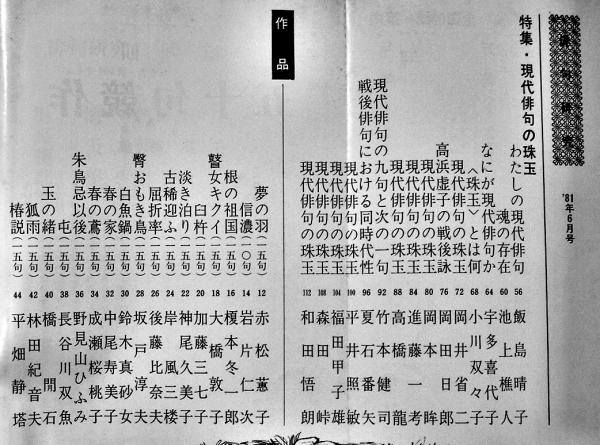 俳句研究
'81年6月号
特集・現代俳句の珠玉
わたしの現代俳句 56 飯島晴子
魂の存在 60 池上樵人
なにが現代俳句か 64 宇多喜代子
〈珠玉〉とは何か 68 小川双々子
現代俳句の珠玉 72 岡井省二
高浜虚子の戦後詠 76 岡田日郎
現代俳句の珠玉 80 岡本眸
現代俳句の珠玉 84 進藤一考
現代俳句の珠玉 88 高橋龍
現代俳句の九句と次の一句 92 竹本健司
戦後俳句における同時代性 96 夏石番矢
現代俳句の珠玉 100 平照敏
現代俳句の珠玉 104 福田甲子雄
現代俳句の珠玉 108 森田峠
現代俳句の珠玉 112 和田悟朗
作品
夢の羽(一五句) 12 赤松蕙子
信濃(一〇句) 14 岩片仁次
根の祖国(一五句) 16 榎本冬一郎
瞽女キクイ(一五句) 18 大橋敦子
臼杵(一五句) 20 加藤三七子
淡き泊り(一五句) 22 神尾久美子
古稀迎ふ(一五句) 24 岸風三楼
屈折率(一五句) 26 後藤比奈夫
臀おもき鳥(一五句) 28 坂戸淳夫
白魚鍋(一五句) 30 鈴木真砂女
春の家(一五句) 32 中尾寿美子
春の鳶(一五句) 34 成瀬桜桃子
朱鳥忌以後(一五句) 36 野見山ひふみ
屯(一五句) 38 長谷川双魚
玉の緒(一五句) 40 橋閒石
狐雨(一五句) 42 林田紀音夫
椿説(一五句) 44 平畑静塔